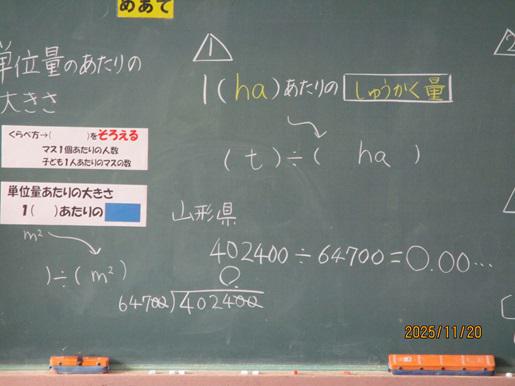 めあて
単位量のあたりの
大きさ
くらべ方→( )をそろえる
マス1個あたりの人数
子ども1人あたりのマスの数
単位量あたりの大きさ
1( )あたりの
m²
)÷(m²)
1
1(ha)あたりの しゅうかく量
(t)÷( ha )
山形県
402400÷64700=0.00…
0.
64700)402400
2
2025/11/20